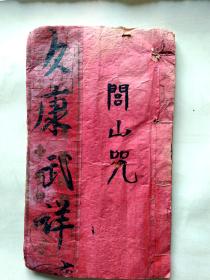 閭山咒
久康武祥